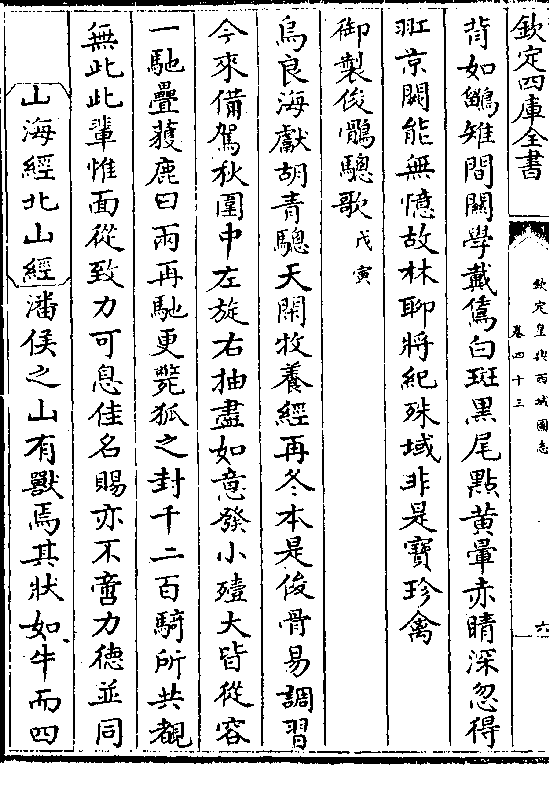 欽定四庫全書
欽定皇輿西域圖志
卷四十三
六
背如鷯雉間關學戴鵀白斑黑尾點黄暈赤睛深忽得
羾京闕能無憶故林聊將紀殊域非是寶珍禽
御製俊鶻驄歌戊寅
烏良海獻胡青驄天閑牧養經再冬本是俊骨易調習
今來備駕秋圍中左旋右抽盡如意發小殪大皆從容
一馳疊獲鹿曰兩再馳更斃狐之封千二百騎所共覩
無此此輩惟面從致力可息佳名賜亦不啻力德並同
山海經北山經潘侯之山有獸焉其狀如牛而四